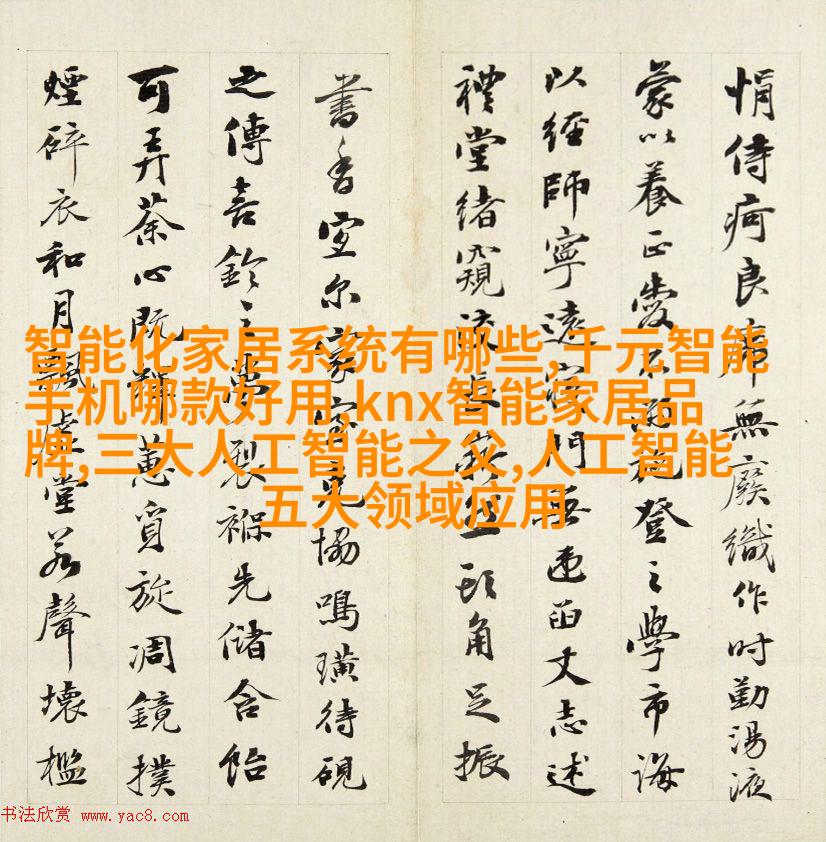 侍疴良無廢織作时勤湯液
蒙以養正登之學市海
以經師寧遠門丈志述
禮堂緒窺角足振
書香室尔協鳴璜待硯
之傳喜鈴之夢裂褓先儲含飴
可弄荼心既蕙質旋凋鏡撲
煙碎衣和月飄虛堂聲壞檻
智能化家居系统有哪些,千元智能
手机哪款好用,knx智能家居品
牌,三大人工智能之父,人工智能
五大领域应用
书法欣赏 www.yac8.com